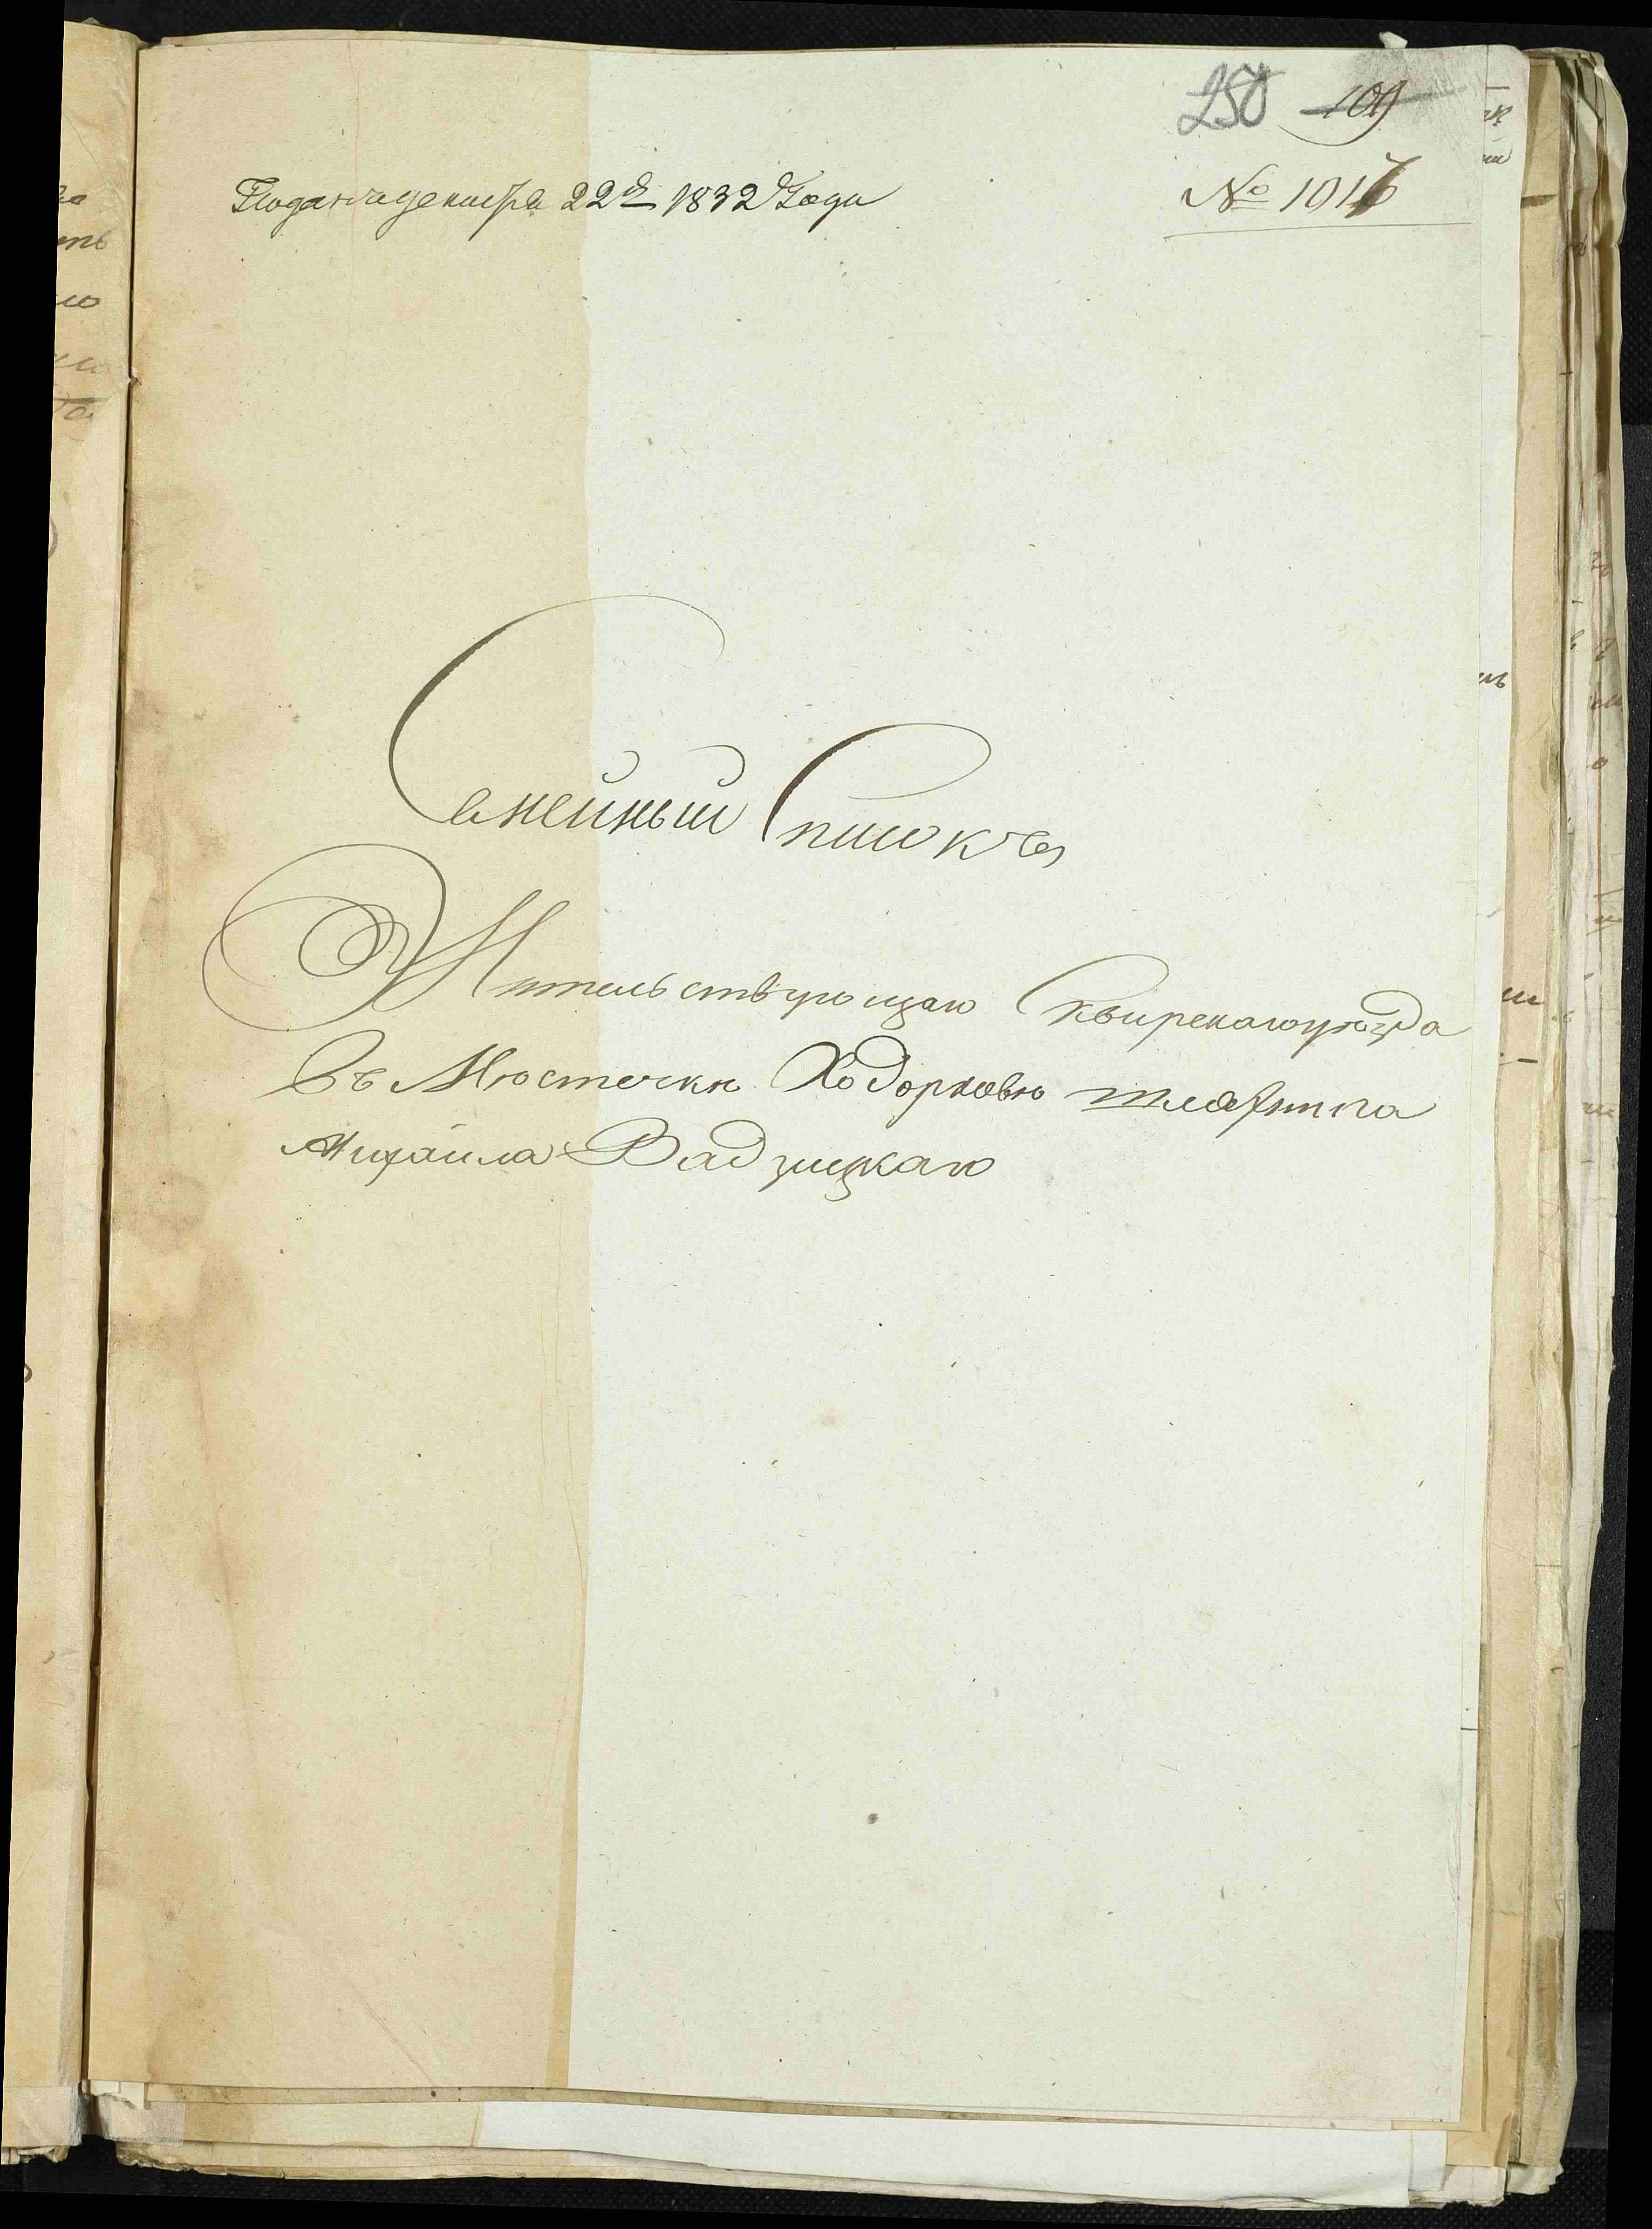 250 109
Подан декабря 22 д 1832 Года
№ 1016
Семейный Списокъ
Жительствующаго Сквирскаго уѣзда
Въ Мѣстечкѣ Ходорковѣ шляхтича
Михайла Вадзицкаго